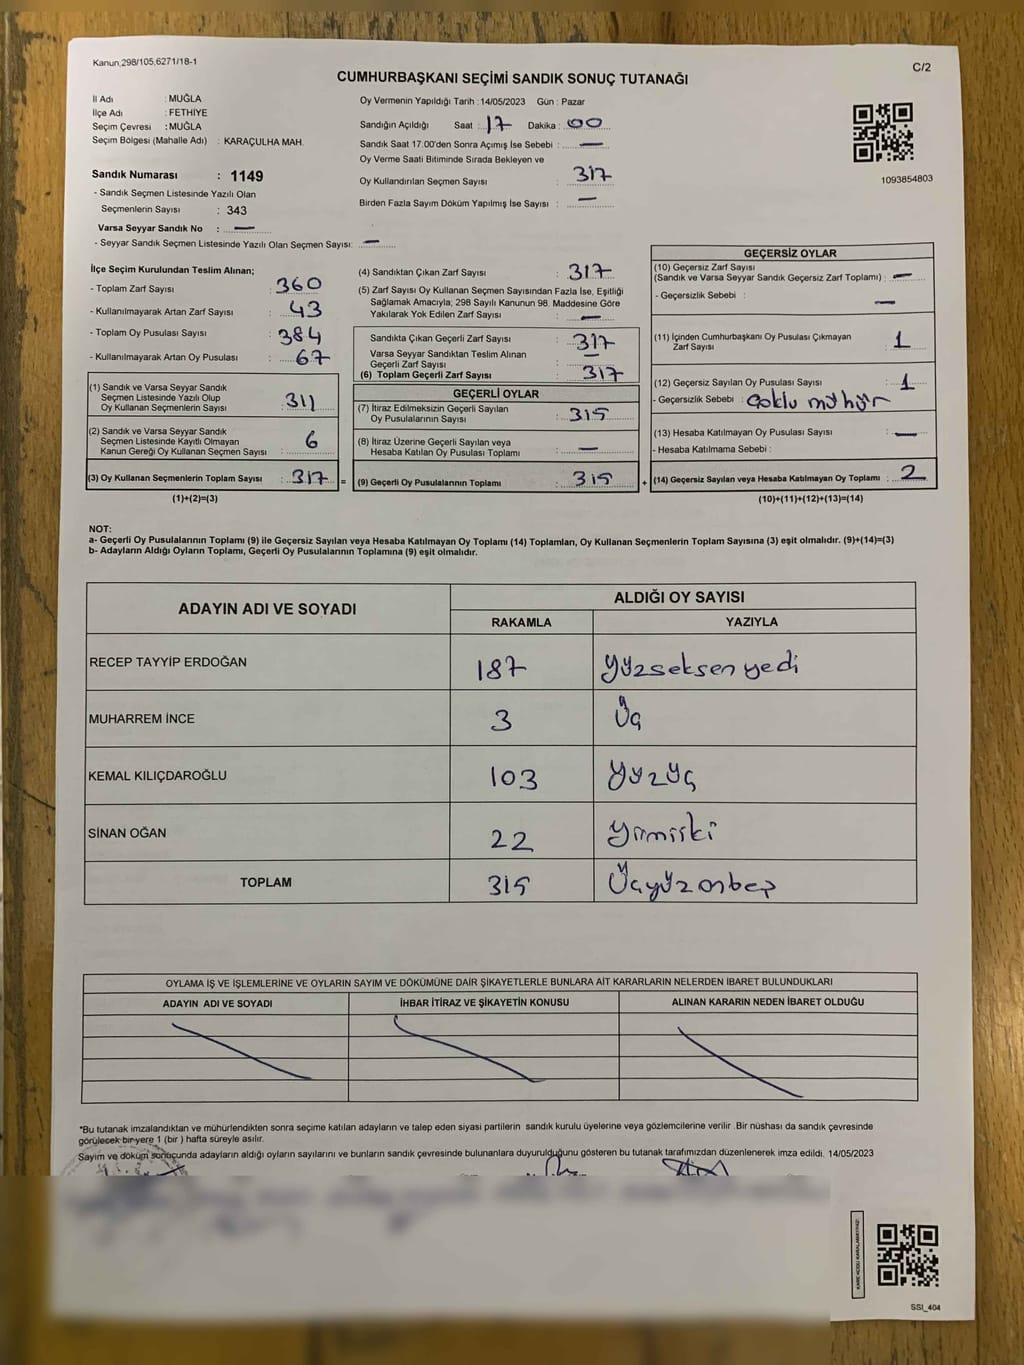 Kanun,298/105,6271/18-1
C/2
CUMHURBAŞKANI SEÇİMİ SANDIK SONUÇ TUTANAĞI
İl Adı : MUĞLA
İlçe Adı : FETHİYE
Seçim Çevresi : MUĞLA
Seçim Bölgesi (Mahalle Adı) : KARAÇULHA MAH.
Sandık Numarası : 1149
- Sandık Seçmen Listesinde Yazılı Olan
Seçmenlerin Sayısı : 343
Varsa Seyyar Sandık No : —
- Seyyar Sandık Seçmen Listesinde Yazılı Olan Seçmen Sayısı: —
Oy Vermenin Yapıldığı Tarih : 14/05/2023 Gün : Pazar
Sandığın Açıldığı Saat : 17 Dakika : 00
Sandık Saat 17.00'den Sonra Açımış İse Sebebi : —
Oy Verme Saati Bitiminde Sırada Bekleyen ve
Oy Kullandırılan Seçmen Sayısı : 317
Birden Fazla Sayım Döküm Yapılmış İse Sayısı : —
1093854803
İlçe Seçim Kurulundan Teslim Alınan;
- Toplam Zarf Sayısı : 360
- Kullanılmayarak Artan Zarf Sayısı : 43
- Toplam Oy Pusulası Sayısı : 384
- Kullanılmayarak Artan Oy Pusulası : 67
(1) Sandık ve Varsa Seyyar Sandık
Seçmen Listesinde Yazılı Olup
Oy Kullanan Seçmenlerin Sayısı : 311
(2) Sandık ve Varsa Seyyar Sandık
Seçmen Listesinde Kayıtlı Olmayan
Kanun Gereği Oy Kullanan Seçmen Sayısı : 6
(3) Oy Kullanan Seçmenlerin Toplam Sayısı : 317 =
(1)+(2)=(3)
(4) Sandıktan Çıkan Zarf Sayısı : 317
(5) Zarf Sayısı Oy Kullanan Seçmen Sayısından Fazla İse, Eşitliği
Sağlamak Amacıyla; 298 Sayılı Kanunun 98. Maddesine Göre
Yakılarak Yok Edilen Zarf Sayısı : —
Sandıkta Çıkan Geçerli Zarf Sayısı : 317
Varsa Seyyar Sandıktan Teslim Alınan
Geçerli Zarf Sayısı : —
(6) Toplam Geçerli Zarf Sayısı : 317
GEÇERLİ OYLAR
(7) İtiraz Edilmeksizin Geçerli Sayılan
Oy Pusulalarının Sayısı : 315
(8) İtiraz Üzerine Geçerli Sayılan veya
Hesaba Katılan Oy Pusulası Toplamı : —
(9) Geçerli Oy Pusulalarının Toplamı : 315 +
GEÇERSİZ OYLAR
(10) Geçersiz Zarf Sayısı
(Sandık ve Varsa Seyyar Sandık Geçersiz Zarf Toplamı) : —
- Geçersizlik Sebebi : —
(11) İçinden Cumhurbaşkanı Oy Pusulası Çıkmayan
Zarf Sayısı : 1
(12) Geçersiz Sayılan Oy Pusulası Sayısı : 1
- Geçersizlik Sebebi : Çoklu mühür
(13) Hesaba Katılmayan Oy Pusulası Sayısı : —
- Hesaba Katılmama Sebebi :
(14) Geçersiz Sayılan veya Hesaba Katılmayan Oy Toplamı : 2
(10)+(11)+(12)+(13)=(14)
NOT:
a- Geçerli Oy Pusulalarının Toplamı (9) ile Geçersiz Sayılan veya Hesaba Katılmayan Oy Toplamı (14) Toplamları, Oy Kullanan Seçmenlerin Toplam Sayısına (3) eşit olmalıdır. (9)+(14)=(3)
b- Adayların Aldığı Oyların Toplamı, Geçerli Oy Pusulalarının Toplamına (9) eşit olmalıdır.
ADAYIN ADI VE SOYADI ALDIĞI OY SAYISI
RAKAMLA YAZIYLA
RECEP TAYYİP ERDOĞAN 187 yüzseksen yedi
MUHARREM İNCE 3 Üç
KEMAL KILIÇDAROĞLU 103 yüzüç
SİNAN OĞAN 22 yirmiiki
TOPLAM 315 Üçyüzonbeş
OYLAMA İŞ VE İŞLEMLERİNE VE OYLARIN SAYIM VE DÖKÜMÜNE DAİR ŞİKAYETLERLE BUNLARA AİT KARARLARIN NELERDEN İBARET BULUNDUKLARI
ADAYIN ADI VE SOYADI İHBAR İTİRAZ VE ŞİKAYETİN KONUSU ALINAN KARARIN NEDEN İBARET OLDUĞU
*Bu tutanak imzalandıktan ve mühürlendikten sonra seçime katılan adayların ve talep eden siyasi partilerin sandık kurulu üyelerine veya gözlemcilerine verilir .Bir nüshası da sandık çevresinde
görülecek bir yere 1 (bir ) hafta süreyle asılır.
Sayım ve döküm sonucunda adayların aldığı oyların sayılarını ve bunların sandık çevresinde bulunanlara duyurulduğunu gösteren bu tutanak tarafımızdan düzenlenerek imza edildi. 14/05/2023
KARE KODU KARALAMAYINIZ!
SSI_404